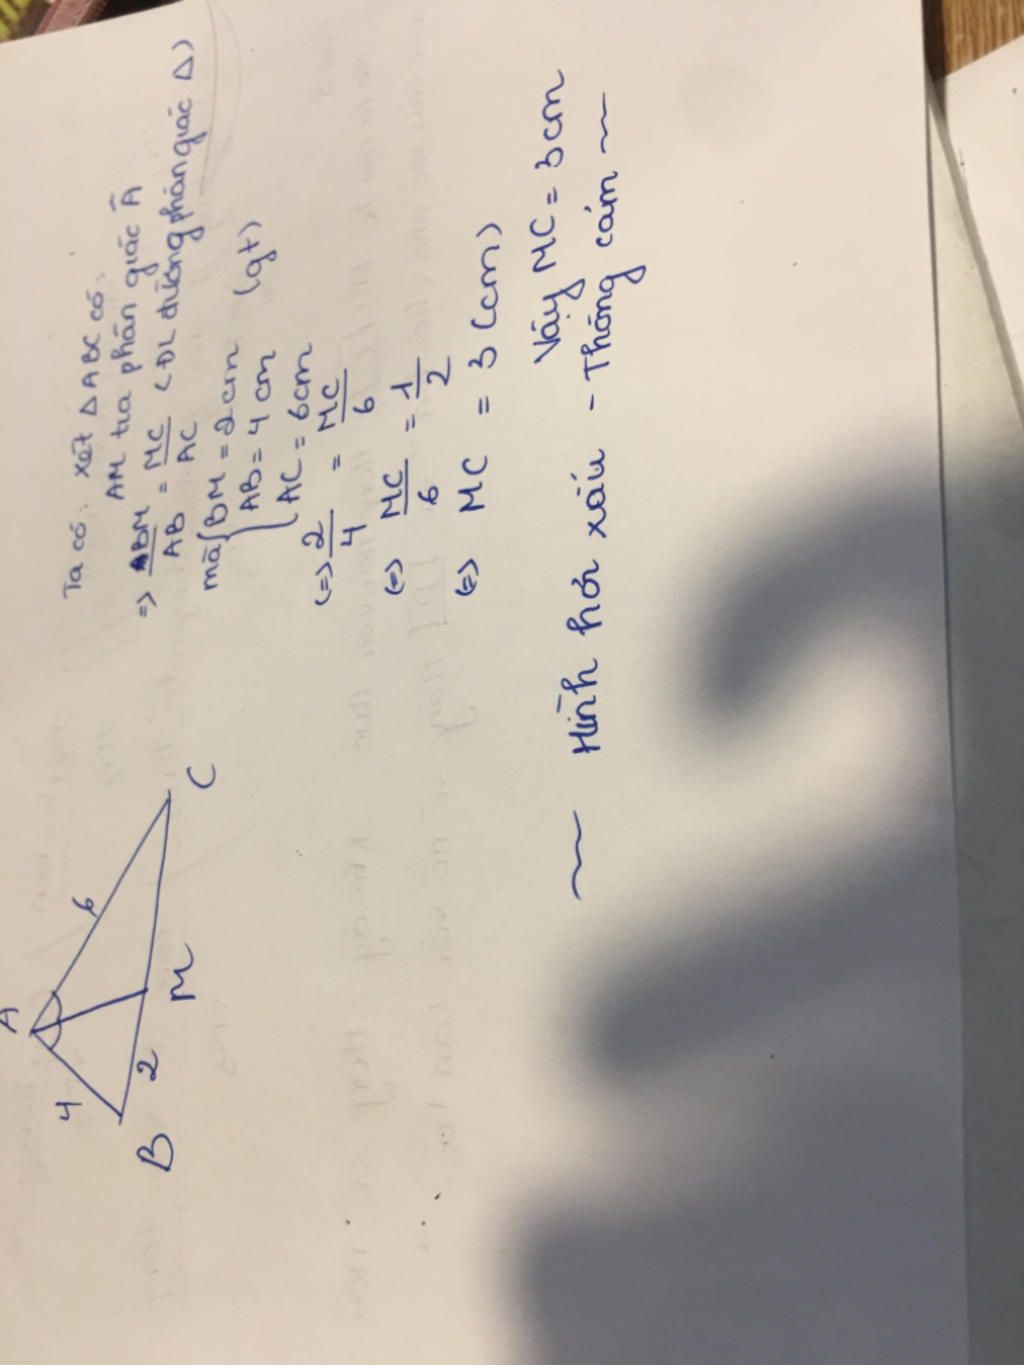 A
4
6
B
2
M
C
Ta có: xét ΔABC có:
AM tia phân giác Â
=> BM/AB = MC/AC (ĐL đường phân giác Δ)
mà { BM = 2cm
AB = 4 cm (gt)
AC = 6cm
(=> 2/4 = MC/6
(=> MC/6 = 1/2
(=> MC = 3 (cm)
Vậy MC = 3cm
~ Hình hơi xấu - Thông cảm ~